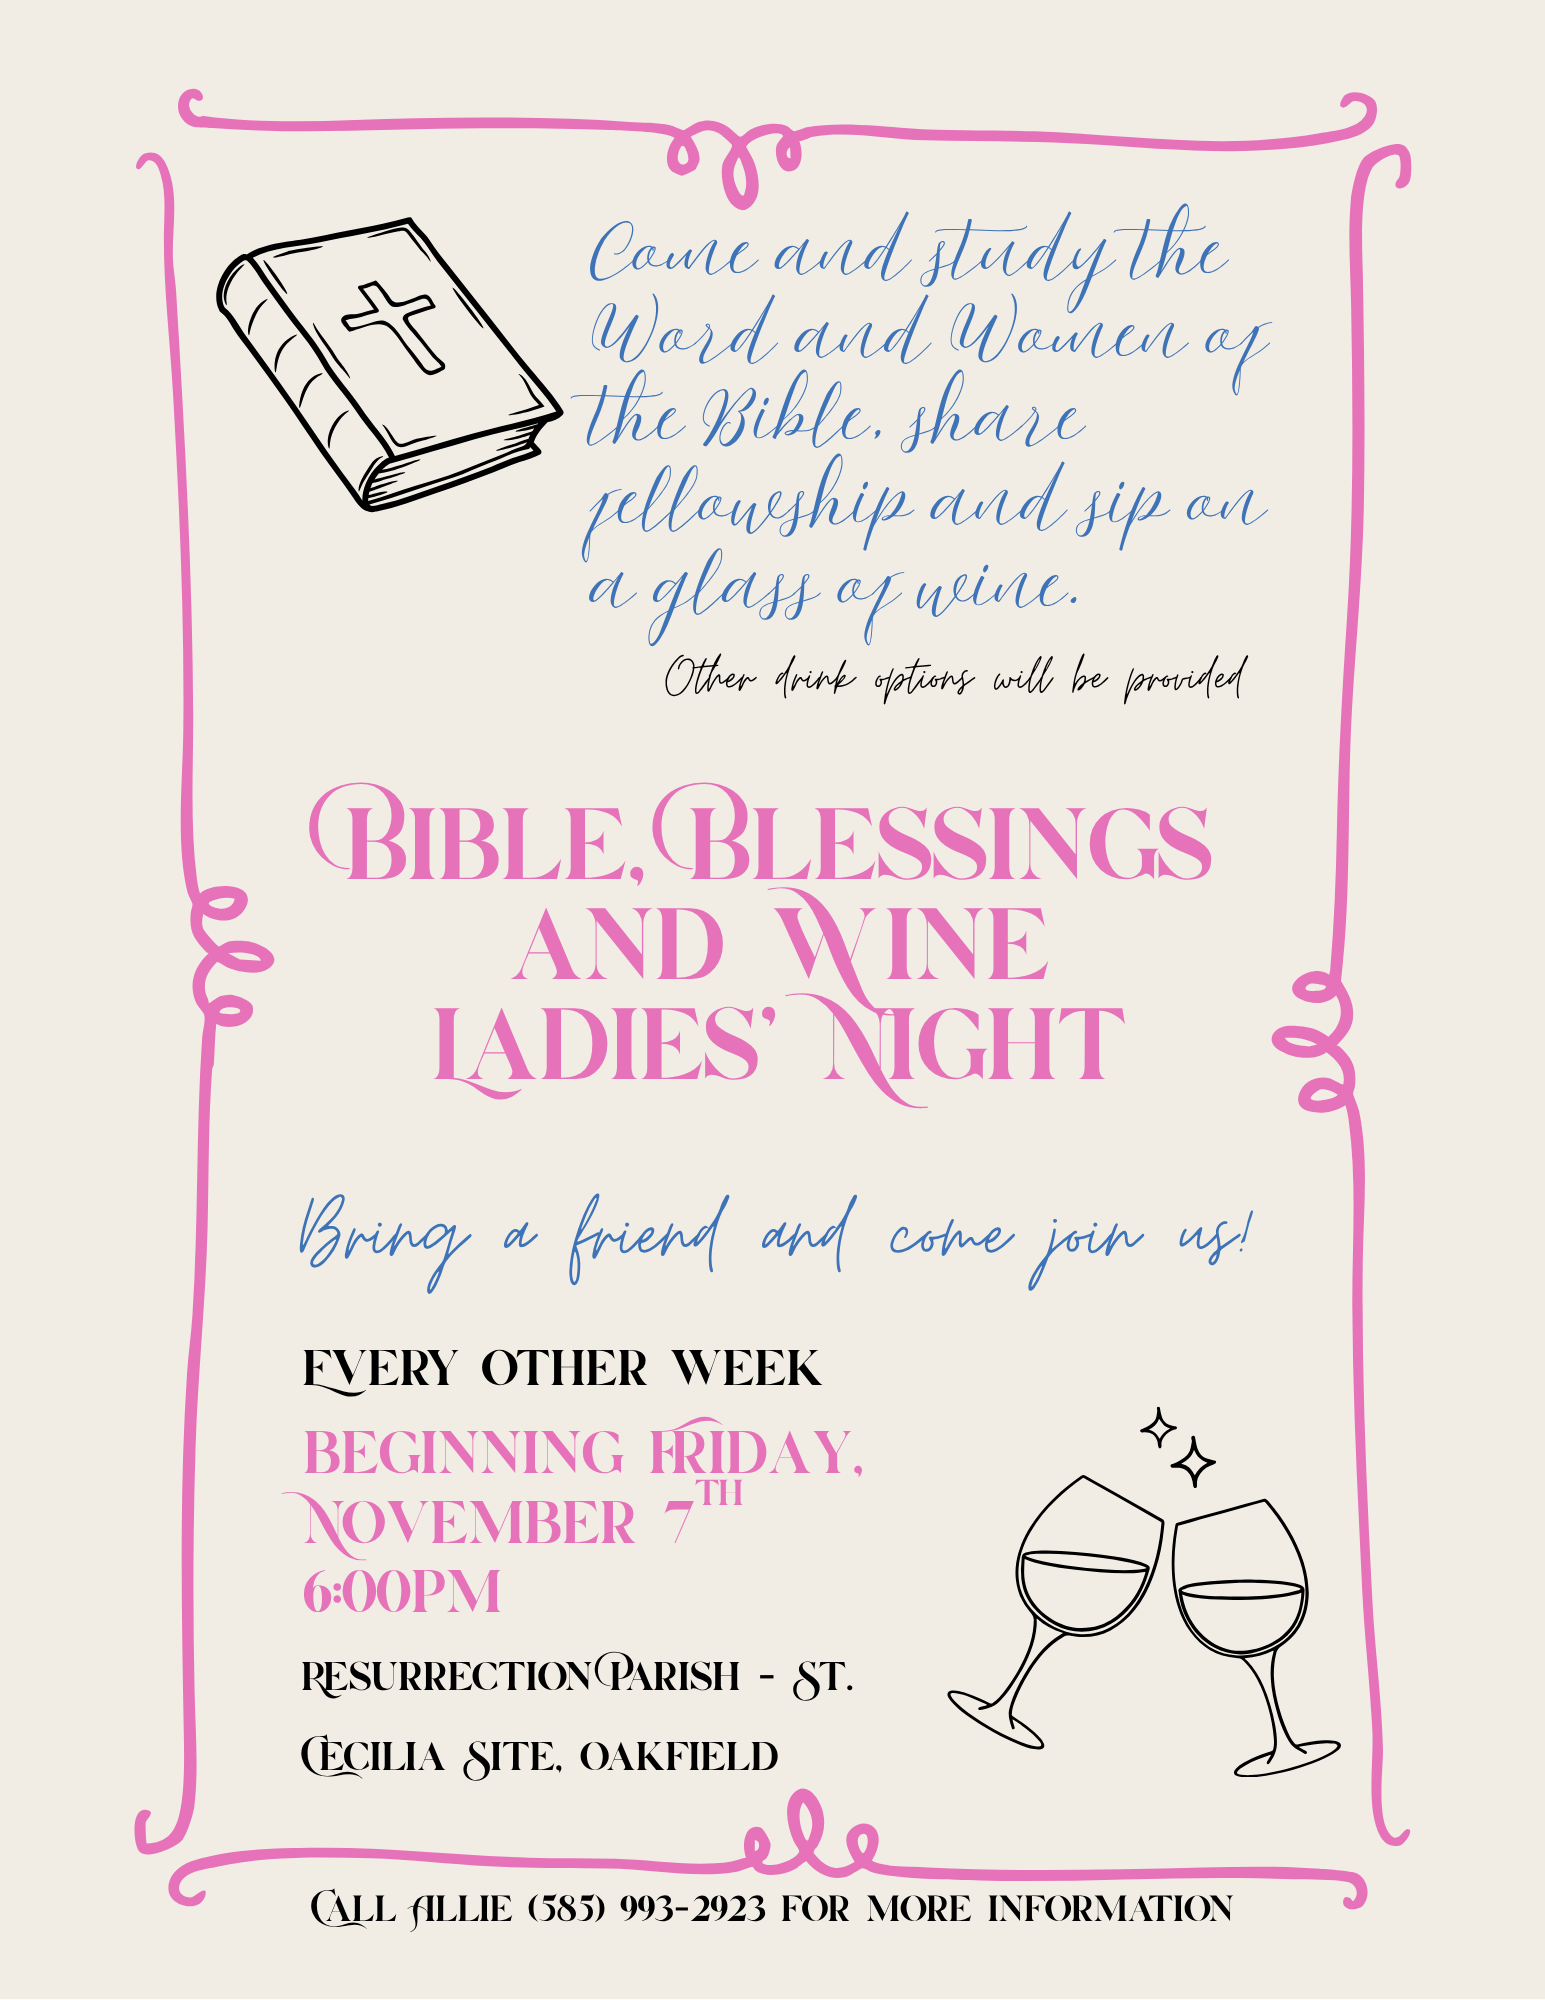 Come and study the
Word and Women of
the Bible, share
fellowship and sip on
a glass of wine.
Other drink options will be provided
Bible, Blessings
and Wine
Ladies' Night
Bring a friend and come join us!
Every other week
Beginning Friday,
November 7th
6:00PM
Resurrection Parish - St.
Cecilia Site, Oakfield
Call Allie (585) 993-2923 for more information